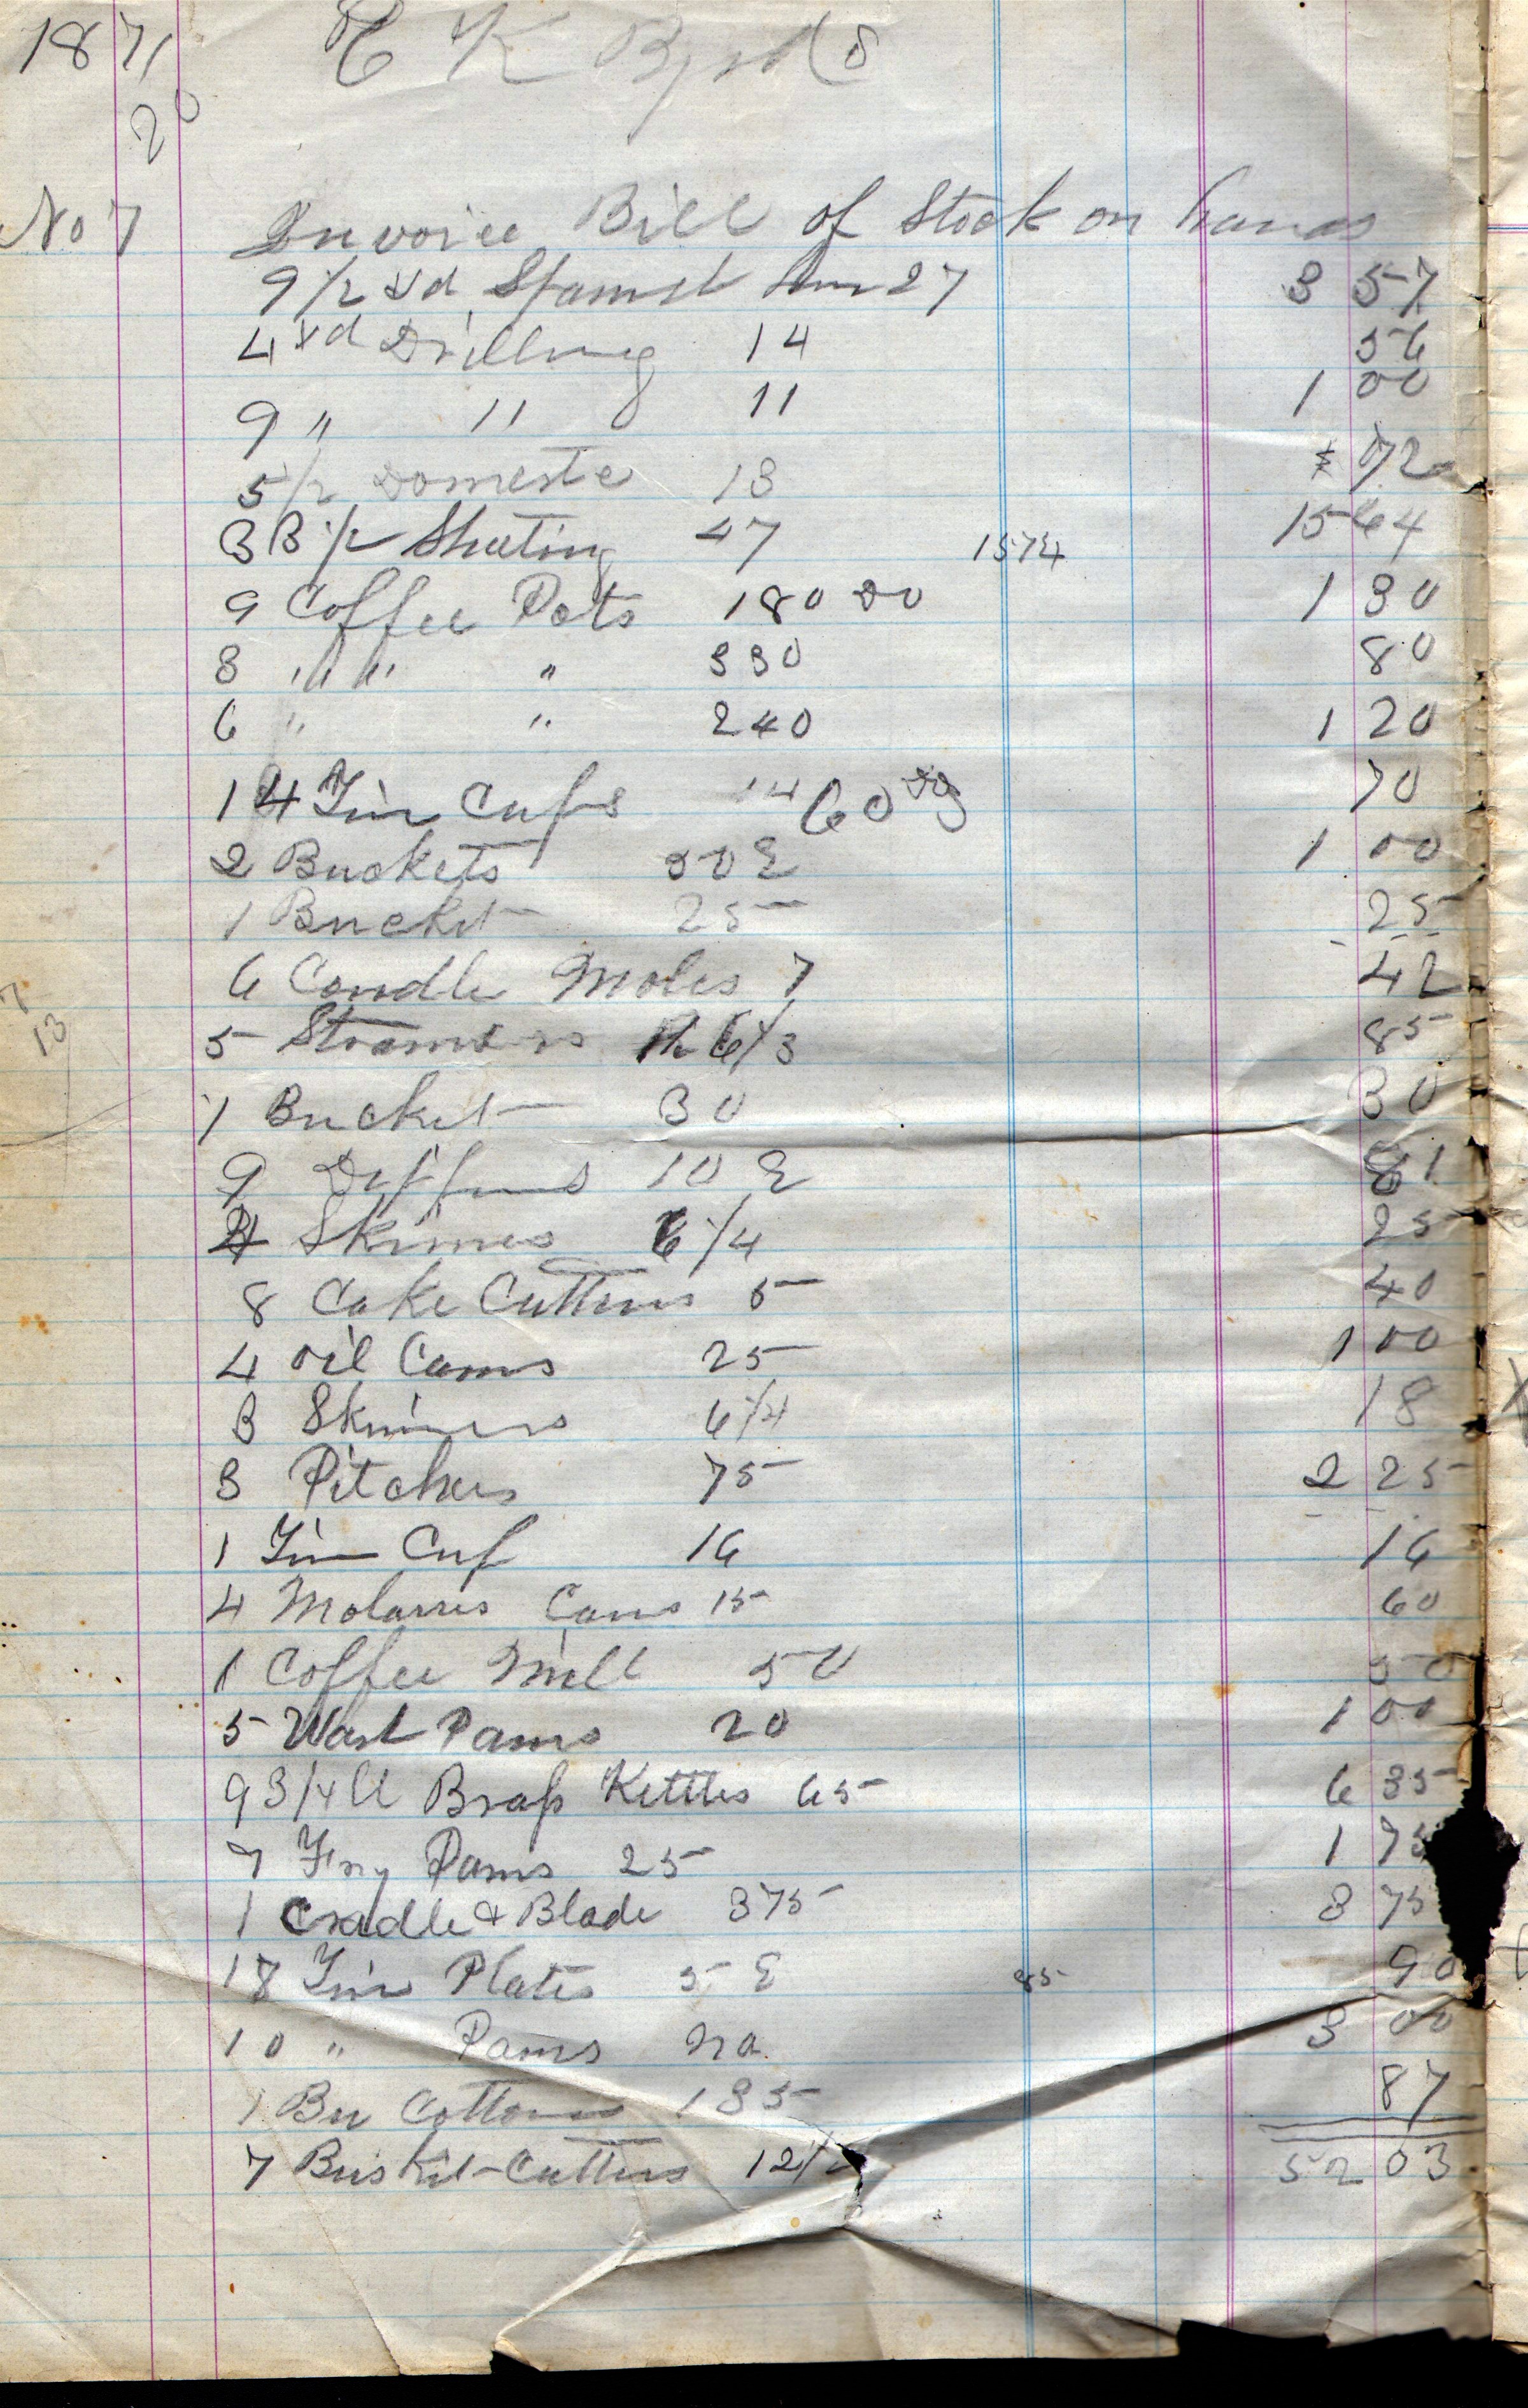 1871
C K Byrd
20
No 7 Invoice Bill of Stock on hands
9 1/2 Yd 27 3 57
4 Yd Drilling 14 56
9 " " 11 1 00
5 1/2 Domestic 13 72
33 1/2 Sheeting 47 1574 15 64
9 Coffee Pots 180 Do 1 30
8 " " " 330 80
6 " " 240 1 20
14 Tin Cups 60 70
2 Buckets 50 E 1 00
1 Bucket 25 25
6 Candle Moles 7 42
7
13
5 85
1 Bucket 30 30
9 Dippers 10 E 81
4 Skimers 6 1/4 25
8 Cake Cutters 5 40
4 Oil Cans 25 1 00
3 Skimers 6 1/4 18
3 Pitchers 75 2 25
1 Tin Cup 16 16
4 Molasses Cans 15 60
1 Coffee Mill 50 50
5 Wash Pans 20 1 00
9 3/4 ll Brass Kettles 65 6 35
7 Fry Pans 25 1 75
1 Cradle & Blade 375 3 75
18 Tin Plates 5 E 85 90
10 " Pans 3 00
1 Bu 135 87
7 Biskit Cutters 12 1/2 52 03